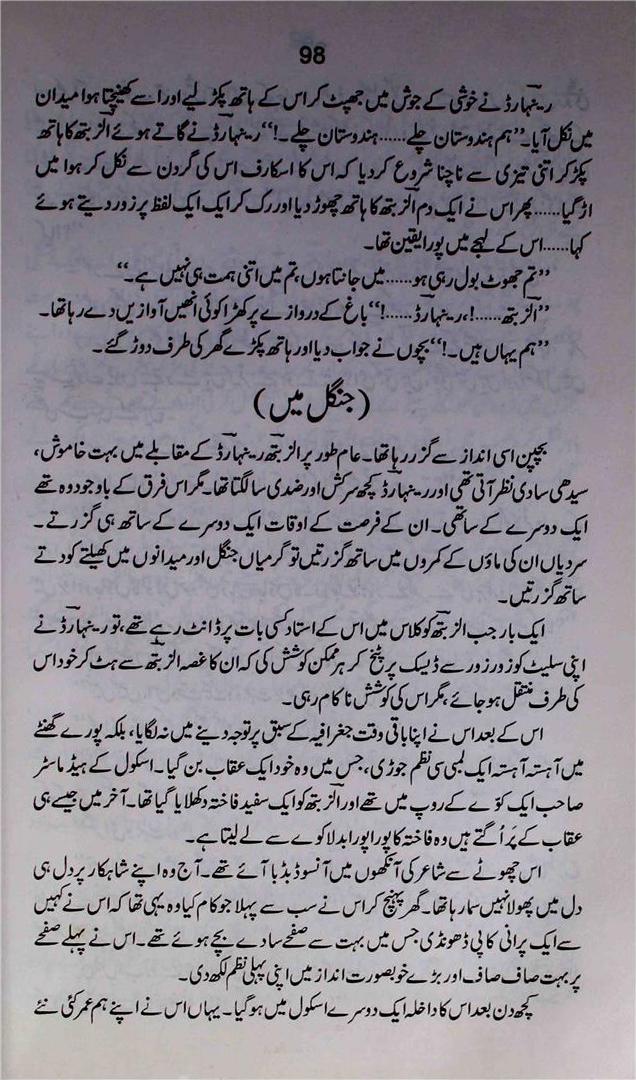 98
رینہارڈ نے خوشی کے جوش میں جھپٹ کر اس کے ہاتھ پکڑ لیے اور اسے کھینچتا ہوا میدان
میں نکل آیا۔ ”ہم ہندوستان چلے...... ہندوستان چلے۔!“ رینہارڈ نے گاتے ہوئے الزبتھ کا ہاتھ
پکڑ کر اتنی تیزی سے ناچنا شروع کر دیا کہ اس کا اسکارف اس کی گردن سے نکل کر ہوا میں
اڑ گیا...... پھر اس نے ایک دم الزبتھ کا ہاتھ چھوڑ دیا اور رک کر ایک ایک لفظ پر زور دیتے ہوئے
کہا...... اس کے لہجے میں پورا یقین تھا۔
”تم جھوٹ بول رہی ہو...... میں جانتا ہوں، تم میں اتنی ہمت ہی نہیں ہے۔“
”الزبتھ......!، رینہارڈ......!“ باغ کے دروازے پر کھڑا کوئی انھیں آوازیں دے رہا تھا۔
”ہم یہاں ہیں۔!“ بچوں نے جواب دیا اور ہاتھ پکڑے گھر کی طرف دوڑ گئے۔
(جنگل میں)
بچپن اسی انداز سے گزر رہا تھا۔ عام طور پر الزبتھ رینہارڈ کے مقابلے میں بہت خاموش،
سیدھی سادی نظر آتی تھی اور رینہارڈ کچھ سرکش اور ضدی سا لگتا تھا۔ مگر اس فرق کے باوجود وہ تھے
ایک دوسرے کے ساتھی۔ ان کے فرصت کے اوقات ایک دوسرے کے ساتھ ہی گزرتے۔
سردیاں ان کی ماؤں کے کمروں میں ساتھ گزرتیں تو گرمیاں جنگل اور میدانوں میں کھیلتے کودتے
ساتھ گزرتیں۔
ایک بار جب الزبتھ کو کلاس میں اس کے استاد کسی بات پر ڈانٹ رہے تھے، تو رینہارڈ نے
اپنی سلیٹ کو زور زور سے ڈیسک پر پٹخ کر ہر ممکن کوشش کی کہ ان کا غصہ الزبتھ سے ہٹ کر خود اس
کی طرف منتقل ہو جائے، مگر اس کی کوشش ناکام رہی۔
اس کے بعد اس نے اپنا باقی وقت جغرافیہ کے سبق پر توجہ دینے میں نہ لگایا، بلکہ پورے گھنٹے
میں آہستہ آہستہ ایک لمبی سی نظم جوڑی، جس میں وہ خود ایک عقاب بن گیا۔ اسکول کے ہیڈ ماسٹر
صاحب ایک کوّے کے روپ میں تھے اور الزبتھ کو ایک سفید فاختہ دکھلایا گیا تھا۔ آخر میں جیسے ہی
عقاب کے پَر اُگتے ہیں وہ فاختہ کا پورا پورا بدلا کوے سے لے لیتا ہے۔
اس چھوٹے سے شاعر کی آنکھوں میں آنسو ڈبڈبا آئے تھے۔ آج وہ اپنے شاہکار پر دل ہی
دل میں پھولا نہیں سما رہا تھا۔ گھر پہنچ کر اس نے سب سے پہلا جو کام کیا وہ یہی تھا کہ اس نے کہیں
سے ایک پرانی کاپی ڈھونڈی جس میں بہت سے صفحے سادے بچے ہوئے تھے۔ اس نے پہلے صفحے
پر بہت صاف صاف اور بڑے خوبصورت انداز میں اپنی پہلی نظم لکھ دی۔
کچھ دن بعد اس کا داخلہ ایک دوسرے اسکول میں ہو گیا۔ یہاں اس نے اپنے ہم عمر کئی نئے